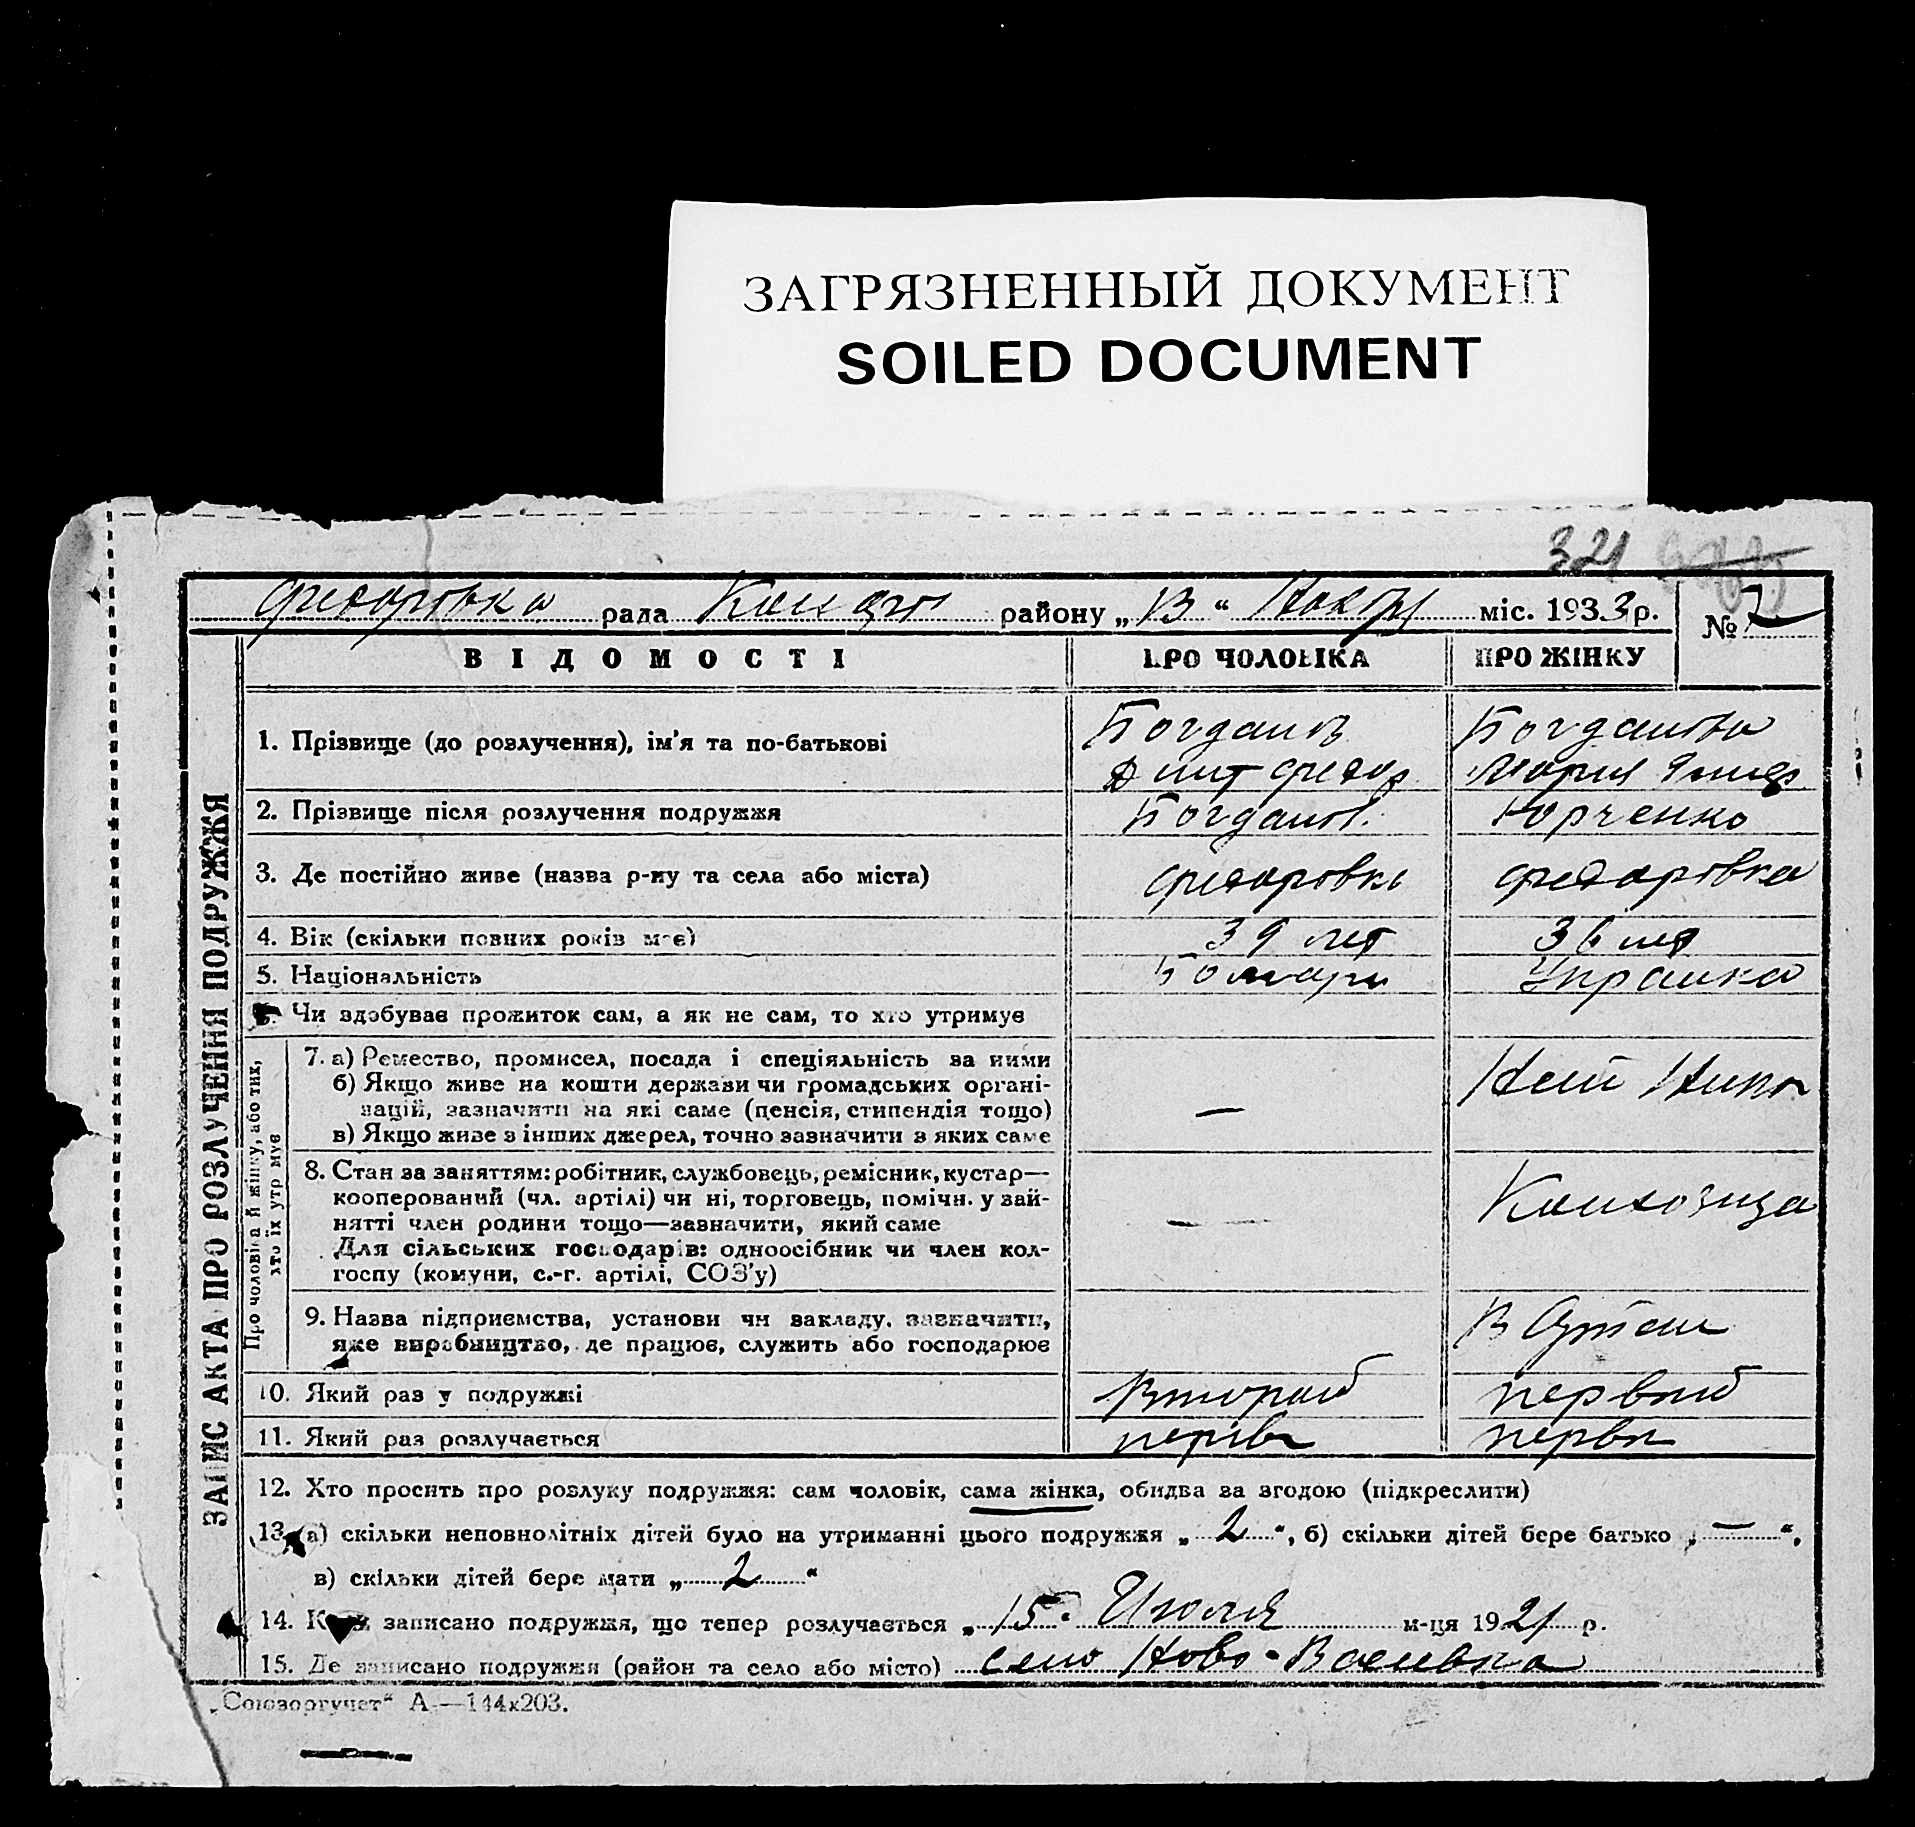 ЗАГРЯЗНЕННЫЙ ДОКУМЕНТ
SOILED DOCUMENT
321
рада району „13“ міс. 1933 р. № 2
ЗАПИС АКТА ПРО РОЗЛУЧЕННЯ ПОДРУЖЖЯ
ВІДОМОСТІ ПРО ЧОЛОВІКА ПРО ЖІНКУ
1. Прізвище (до розлучення), ім’я та по-батькові Богданов Богданова
Дмит Федор Мария
2. Прізвище після розлучення подружжя Богданов. Юрченко
3. Де постійно живе (назва р-ну та села або міста) Федоровка Федоровка
4. Вік (скільки повних років має) 39 лет 36 лет
5. Національність Болгарин Украинка
Чи здобуває прожиток сам, а як не сам, то хто утримує
Про чоловіка й жінку, або тих,
хто їх утримує
7. а) Ремество, промисел, посада і спеціяльність за ними
б) Якщо живе на кошти держави чи громадських органі-
зацій, зазначити на які саме (пенсія, стипендія тощо) —
в) Якщо живе з інших джерел, точно зазначити з яких саме
8. Стан за заняттям: робітник, службовець, ремісник, кустар—
кооперований (чл. артілі) чи ні, торговець, помічн. у зай- Колхозница
нятті член родини тощо—зазначити, який саме —
Для сільських господарів: одноосібник чи член кол-
госпу (комуни, с.-г. артілі, СОЗ’у)
9. Назва підприємства, установи чи закладу, зазначити, В Артели
яке виробництво, де працює, служить або господарює
10. Який раз у подружжі Второй первый
11. Який раз розлучається первы первы
12. Хто просить про розлуку подружжя: сам чоловік, сама жінка, обидва за згодою (підкреслити)
13. а) скільки неповнолітніх дітей було на утриманні цього подружжя „ 2 “, б) скільки дітей бере батько „ — “,
в) скільки дітей бере мати „ 2 “
14. Коли записано подружжя, що тепер розлучається „ 15. Июля м-ця 1921 р.
15. Де записано подружжя (район та село або місто) село Ново-Василевка
„Союзоргучет“ А.—144х203.